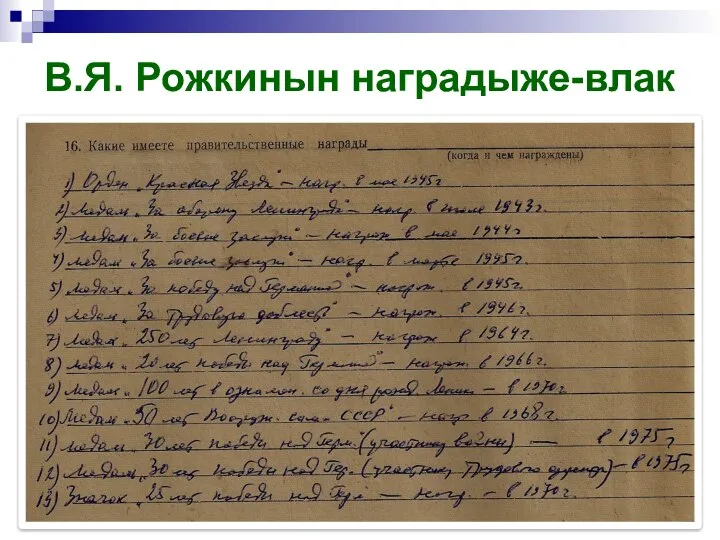 В.Я. Рожкинын наградыже-влак
16. Какие имеете правительственные награды
(когда и чем награждены)
1) Орден "Красная Звезда" – нагр. в мае 1945 г
2) медаль "За оборону Ленинграда" – нагр. в июле 1943 г.
3) медаль "За боевые заслуги" – награж в мае 1944 г
4) медаль "За боевые заслуги" – нагр. в марте 1945 г.
5) медаль "За победу над Германией" – награж. в 1945 г.
6) медаль "За трудовую доблесть" – награж. в 1946 г.
7) медаль "250 лет Ленинграду" – награж в 1964 г.
8) медаль "20 лет победы над Германией" – награж. в 1966 г.
9) медаль "100 лет в ознамен. со дня рожд. Ленина – в 1970 г
10) Медаль "50 лет Вооруж. силам СССР" – нагр в 1968 г.
11) медаль "30 лет победы над Герм." (участнику войны) — в 1975 г
12) Медаль "30 лет победы над Гер. (участнику Трудового фронта) – в 1975 г
13) Значок "25 лет победы над Гер – нагр. – в 1970 г.